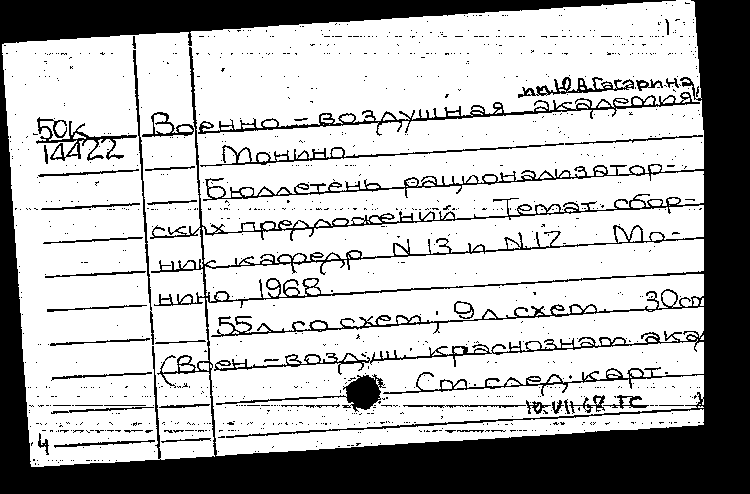 1
им. Ю.А. Гагарина
50к Военно-воздушная академия
14422 Монино.
Бюллетень рационализатор-
ских предложений. Темат. сбор-
ник кафедр N 13 и N 17. Мо-
нино, 1968.
55 л. со схем.; 9 л. схем. 30 cm
(Воен.-воздуш. краснознам. ака
См. след. карт.
10.VII.68. ТС
4